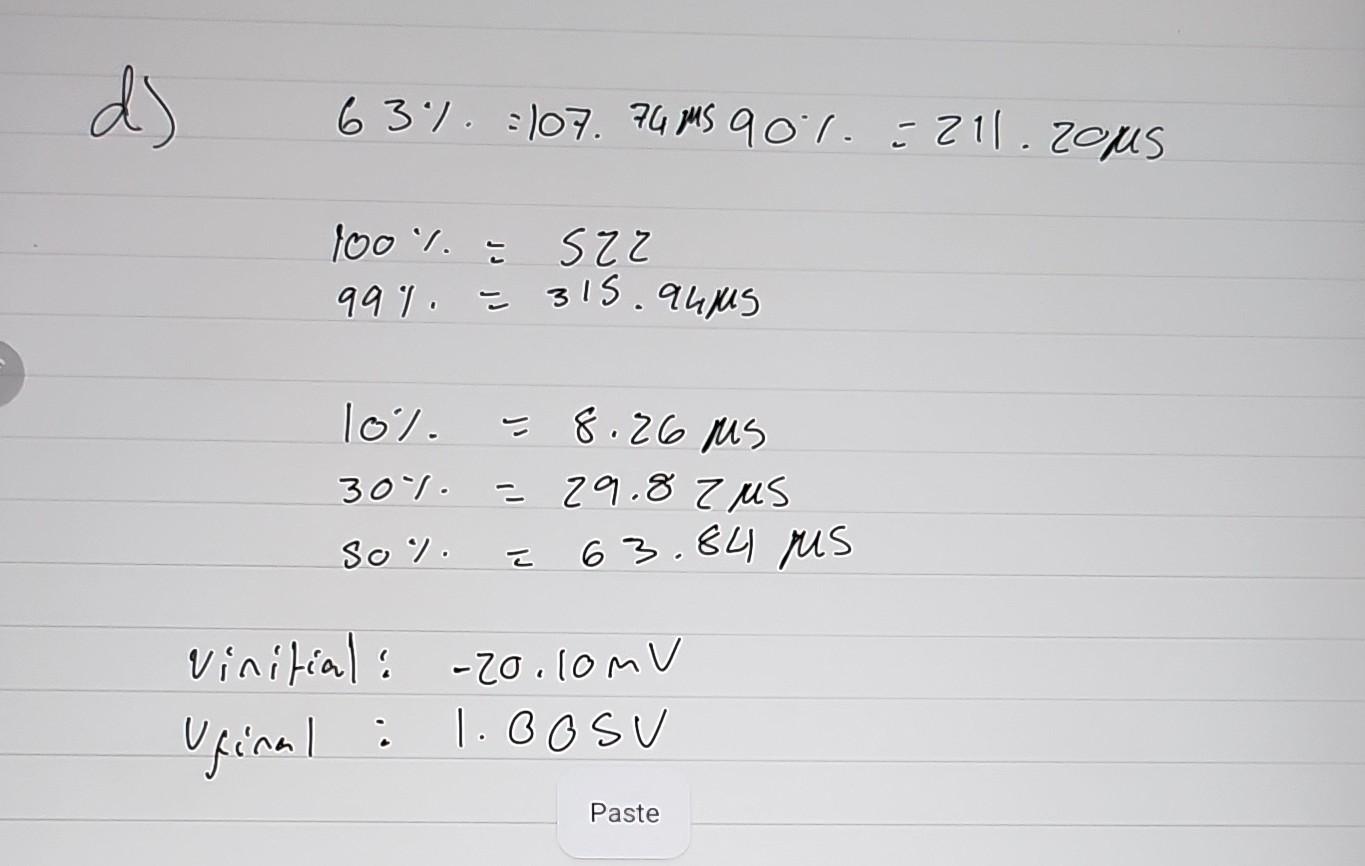 d) 63% = 107.74 μs 90% = 211.20μs
100% = 522
99% = 315.94μs
10% = 8.26 μs
30% = 29.82 μs
50% = 63.84 μs
Vinitial: -20.10mV
Vfinal : 1.005V
Paste